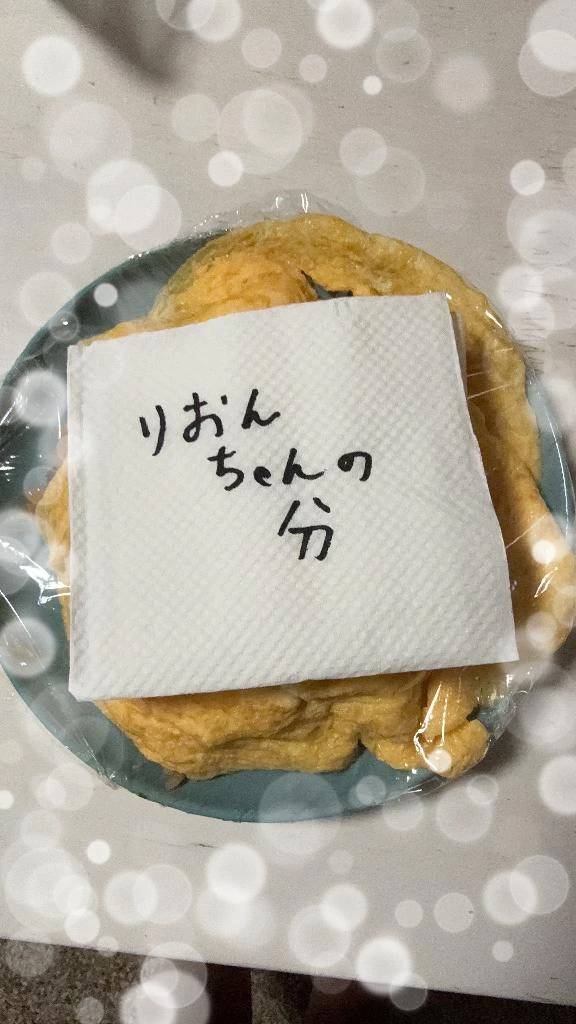 りおん
ちゃんの
分